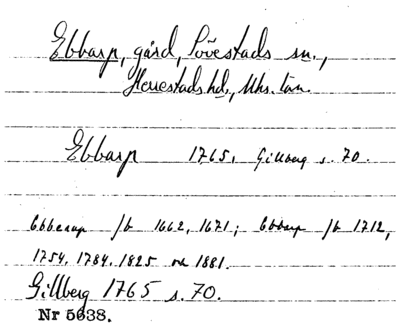 Ebbarp, gård, Sövestads sn.,
Herrestads hd., Mhs. län.
Ebbarp 1765. Gillberg s. 70.
Ebberup jb 1662, 1671; Ebbarp jb 1712,
1754, 1784, 1825 och 1881.
Gillberg 1765 s. 70.
Nr 5638.